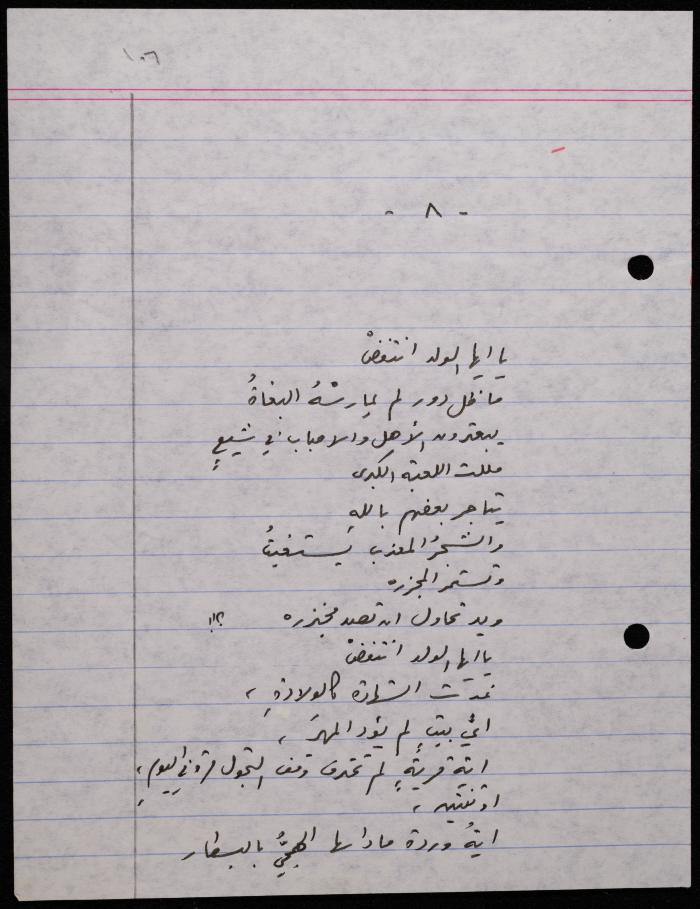 ١٠٦
- ٨ -
يا ايها الولد انتفضْ
ما ظل دور لم يمارسْهُ البغاةُ
يبعثرون الأهل والاحباب في شيعٍ
مللت اللعبة الكبرى
يتاجر بعضهم باللهِ
والشجرُ المعذب يستغيثُ
وتستمر المجزره
ويد تحاول ان تصد مجنزره ؟!!
يا ايها الولد انتفضْ
غدت الشهادة كالولادةِ ،
ايُّ بيتٍ لم يؤد المهرَ ،
ايّة قريةٍ لم تخترق وقف التجول مرة في اليوم ،
او ثنتين ،
ايةُ وردة ما داسها الهمجيُّ بالبسطار